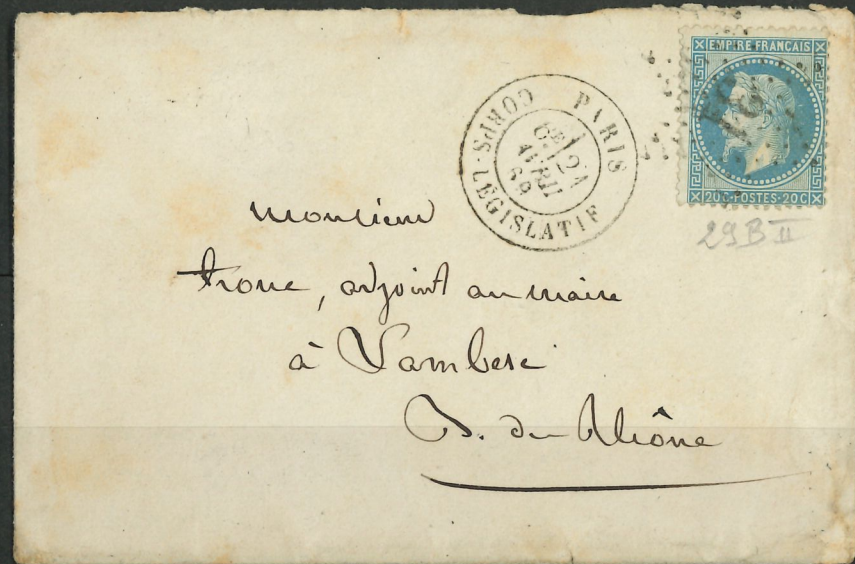 EMPIRE FRANÇAIS
20 C · POSTES · 20 C
29 B II
PARIS
CORPS-LÉGISLATIF
6E
21
AVRIL
68
Monsieur
trouc, adjoint au maire
à Lambesc
B. du Rhône